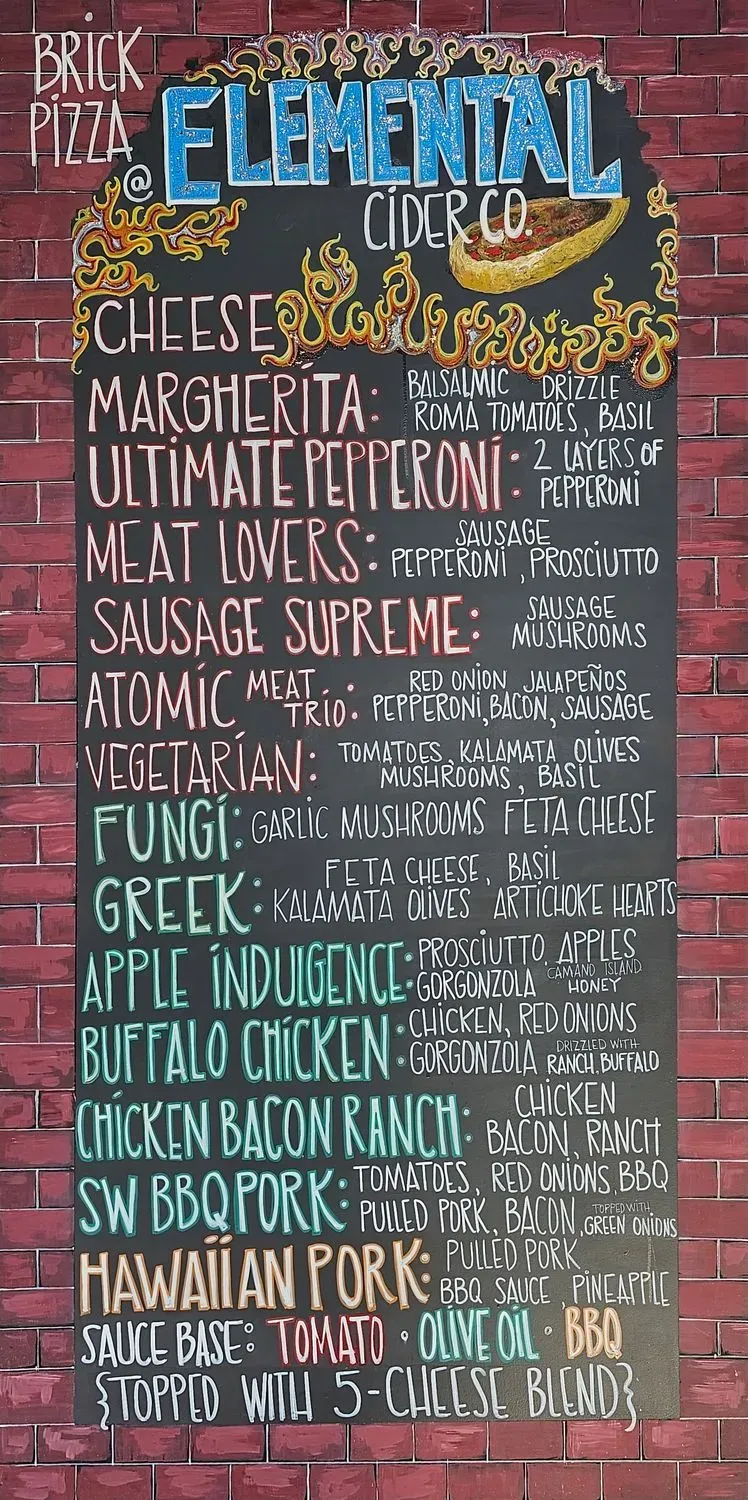 BRICK
PIZZA
@
ELEMENTAL
CIDER CO.
CHEESE
MARGHERITA: BALSALMIC DRIZZLE
ROMA TOMATOES, BASIL
ULTIMATE PEPPERONI: 2 LAYERS OF
PEPPERONI
MEAT LOVERS: SAUSAGE
PEPPERONI, PROSCIUTTO
SAUSAGE SUPREME: SAUSAGE
MUSHROOMS
ATOMIC MEAT TRIO: RED ONION JALAPEÑOS
PEPPERONI, BACON, SAUSAGE
VEGETARIAN: TOMATOES, KALAMATA OLIVES
MUSHROOMS, BASIL
FUNGI: GARLIC MUSHROOMS FETA CHEESE
GREEK: FETA CHEESE, BASIL
KALAMATA OLIVES ARTICHOKE HEARTS
APPLE INDULGENCE: PROSCIUTTO, APPLES
GORGONZOLA CAMANO ISLAND
HONEY
BUFFALO CHICKEN: CHICKEN, RED ONIONS
GORGONZOLA DRIZZLED WITH
RANCH, BUFFALO
CHICKEN BACON RANCH: CHICKEN
BACON, RANCH
SW BBQ PORK: TOMATOES, RED ONIONS, BBQ
PULLED PORK, BACON, TOPPED WITH
GREEN ONIONS
HAWAIIAN PORK: PULLED PORK
BBQ SAUCE, PINEAPPLE
SAUCE BASE: TOMATO · OLIVE OIL · BBQ
{TOPPED WITH 5-CHEESE BLEND}